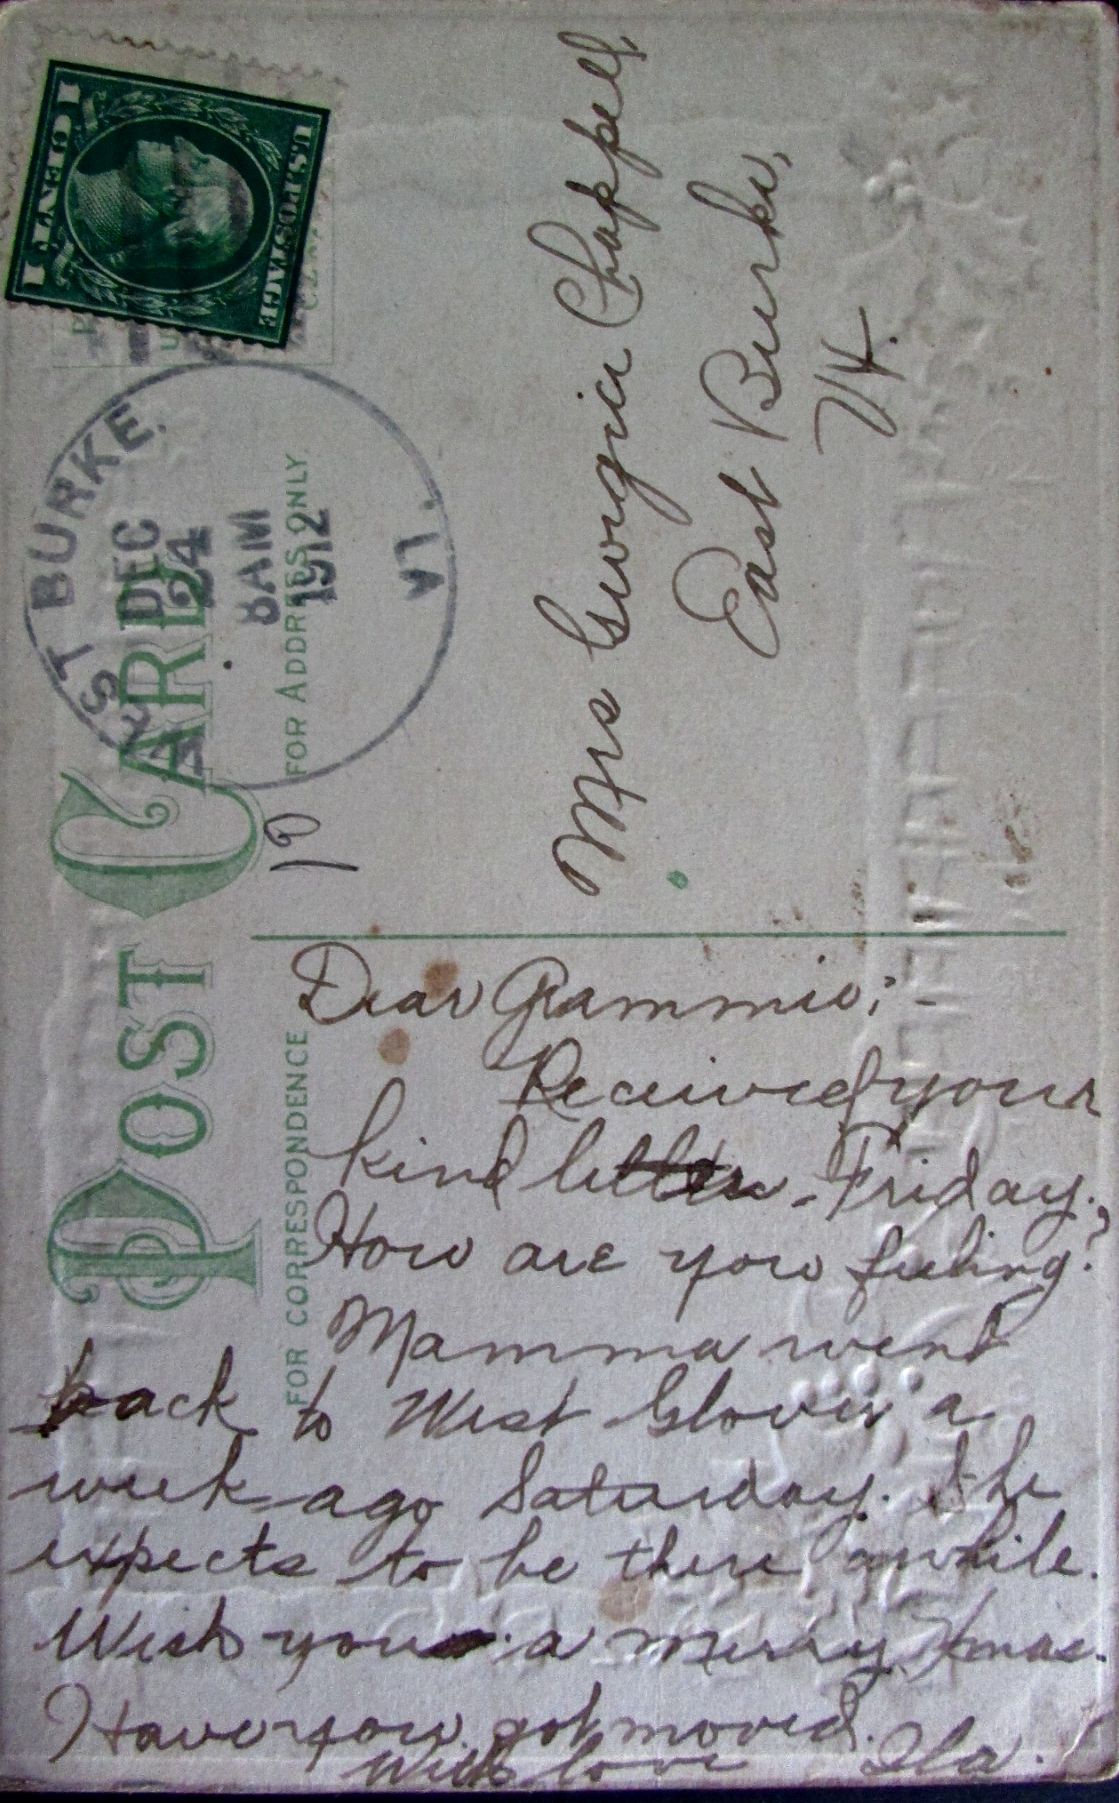 POST CARD
FOR CORRESPONDENCE
FOR ADDRESS ONLY
U.S. POSTAGE
1 CENT 1
EAST BURKE.
DEC
24
8 AM
1912
VT.
10
Mrs Georgia Chappell,
East Burke,
Vt.
Dear Grammie:-
Received your
kind letter - Friday.
How are you feeling?
Mamma went
back to West Glover a
week ago Saturday. She
expects to be there awhile.
Wish you a merry Xmas.
Have you got moved.
With love Ila.